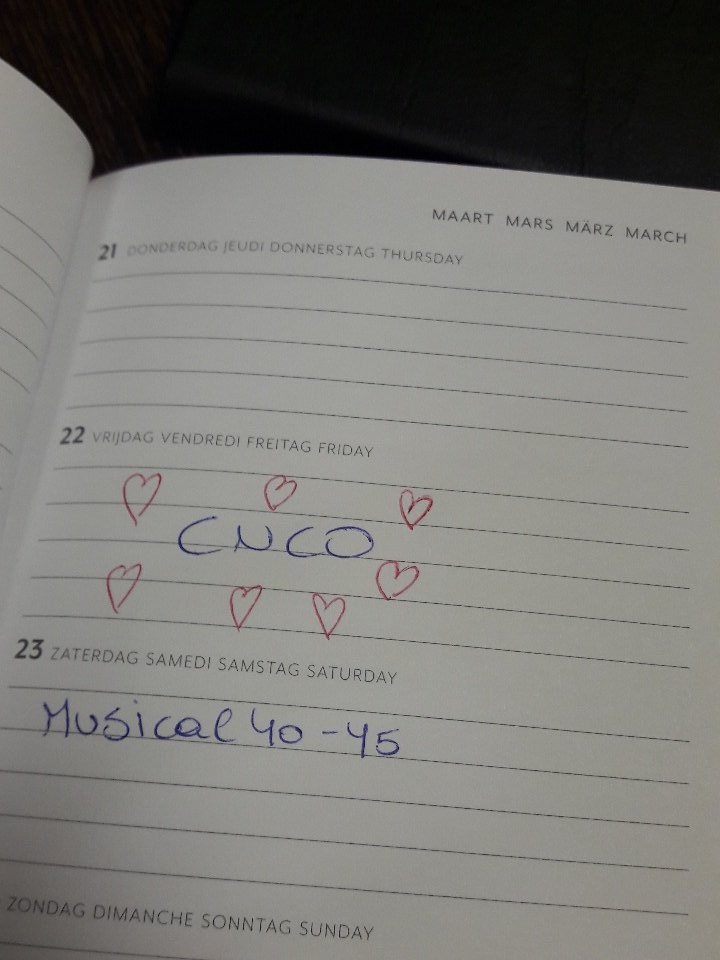 MAART MARS MÄRZ MARCH
21 DONDERDAG JEUDI DONNERSTAG THURSDAY
22 VRIJDAG VENDREDI FREITAG FRIDAY
CNCO
23 ZATERDAG SAMEDI SAMSTAG SATURDAY
Musical 40-45
ZONDAG DIMANCHE SONNTAG SUNDAY